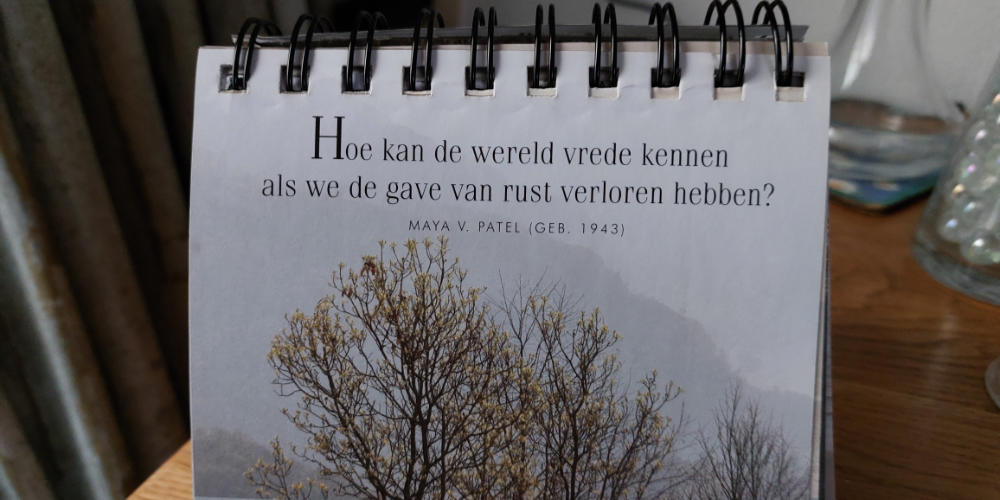 Hoe kan de wereld vrede kennen
als we de gave van rust verloren hebben?
MAYA V. PATEL (GEB. 1943)